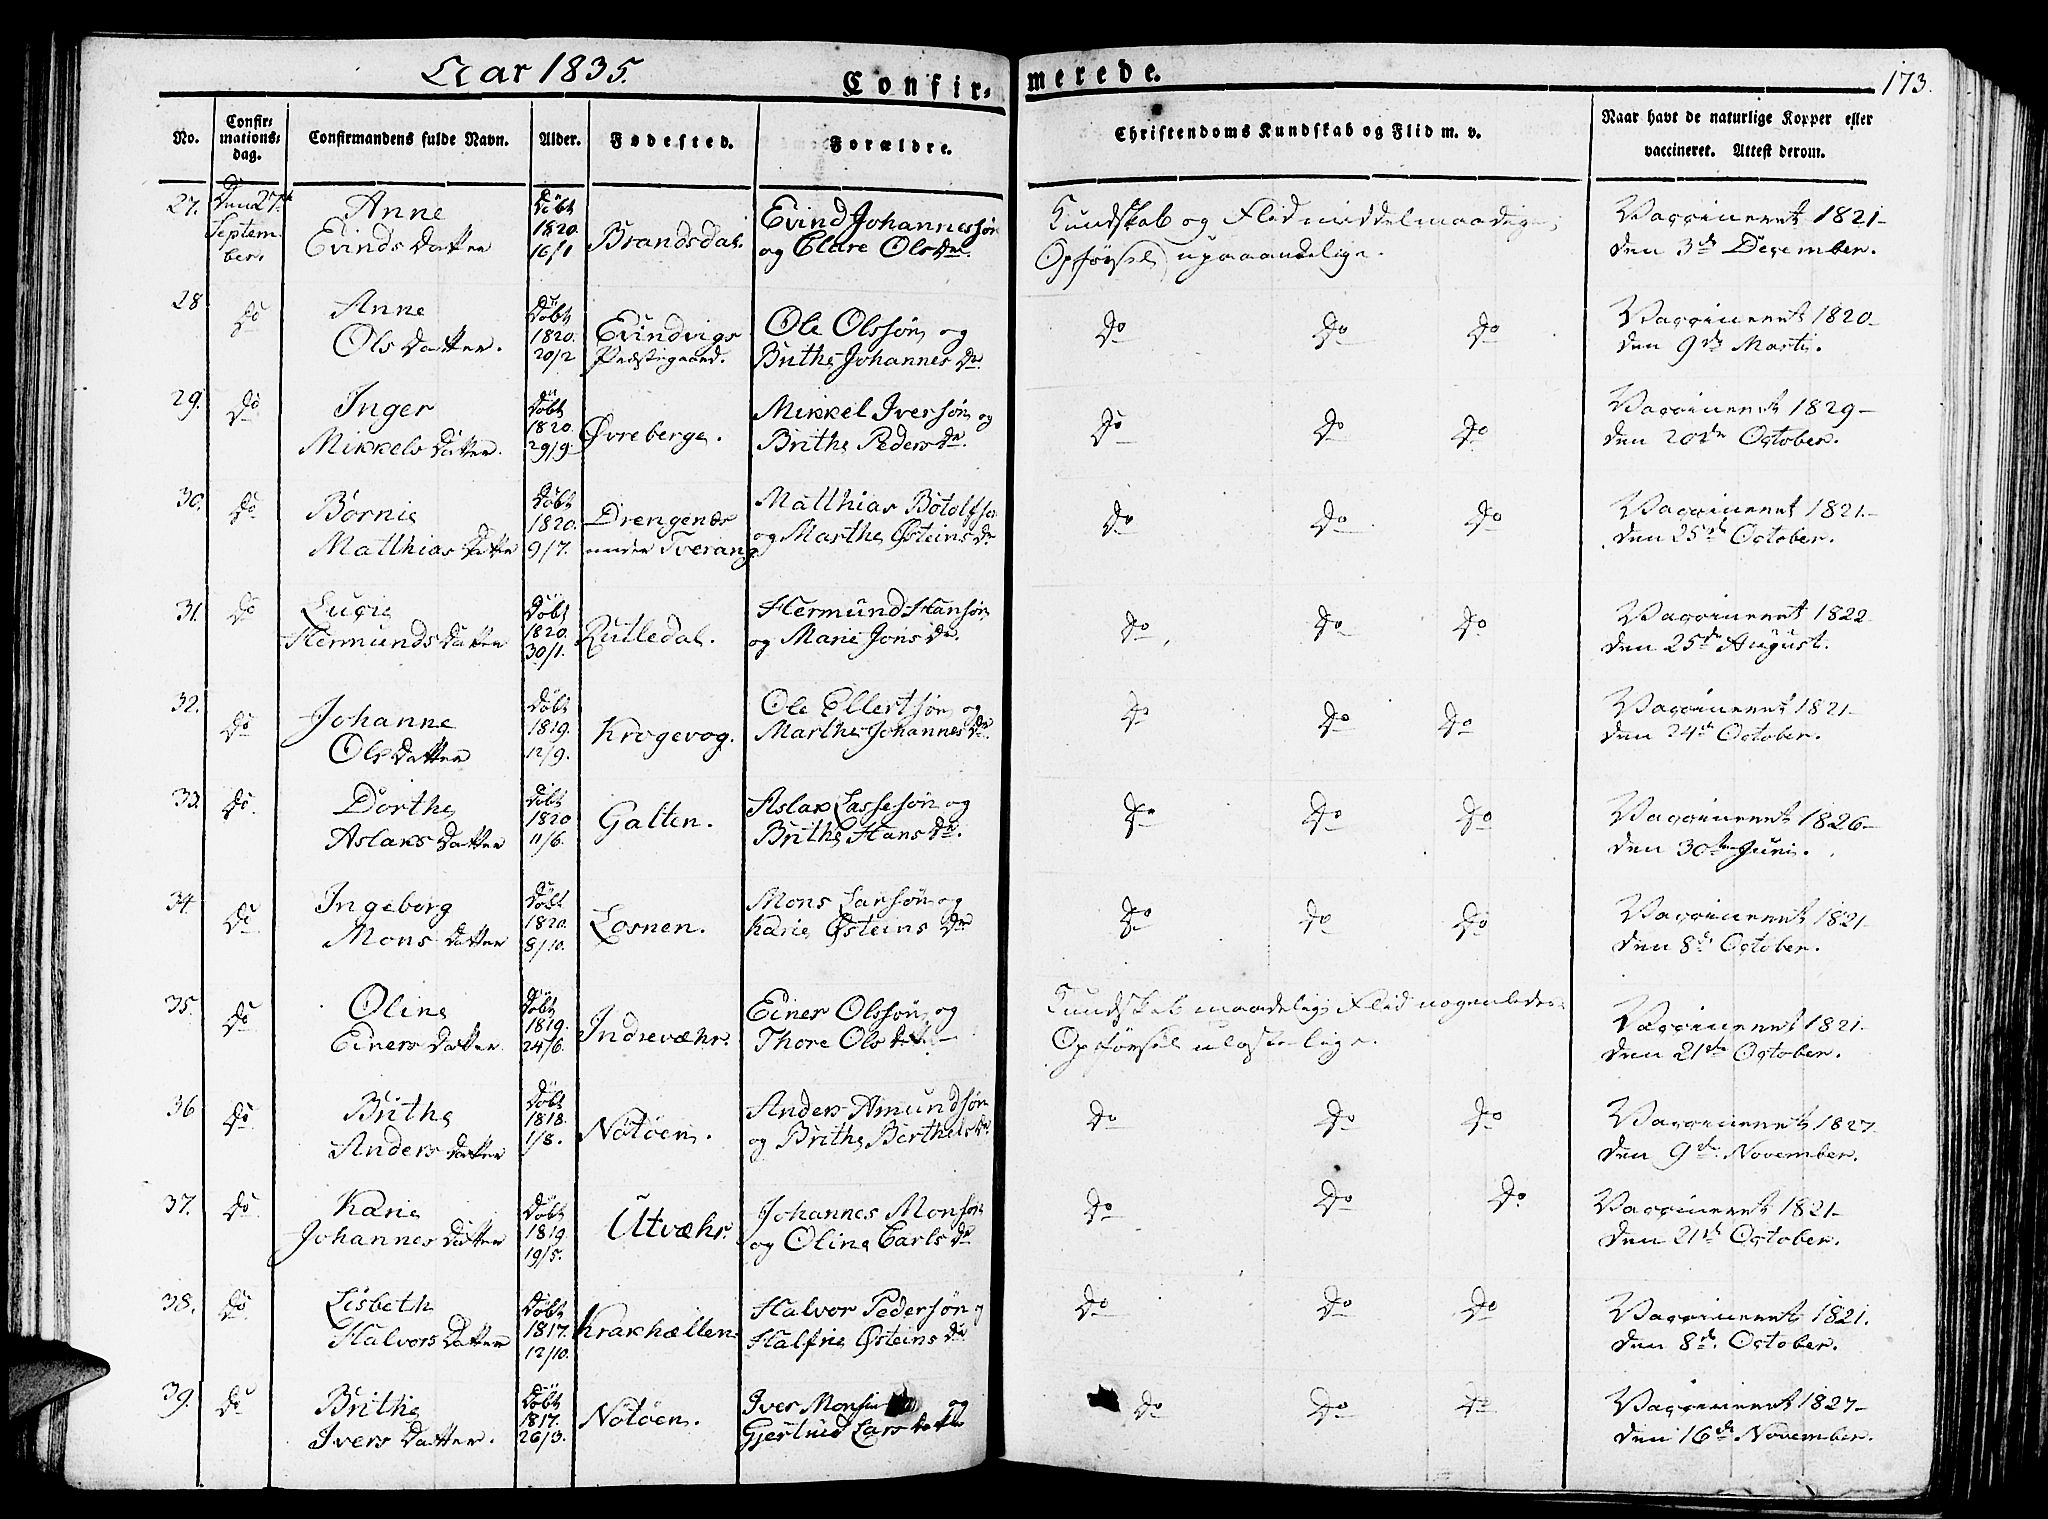 Aar 1835.
Confir-
merede.
173.
No.
Confir-
mations-
dag.
Confirmandens fulde Navn.
Alder.
Fødested.
Forældre.
Christendoms Kundskab og Flid m. v.
Naar havt de naturlige Kopper eller
vaccineret. Attest derom.
27.
Den 27de
Septem-
ber.
Anne
Evinds Datter
Døbt
1820.
16/1
Brandsdal.
Evind Johannessøn
og Clare Olsdr.
Kundskab og Flid middelmaadige,
Opførsel upaaandelige.
Vaccineret 1821-
den 3de December.
28
Do
Anne
Ols Datter.
Døbt
1820.
20/2
Evindvigs
Præstegaard.
Ole Olssøn og
Brithe Johannes Dr.
Do Do Do
Vaccineret 1820-
den 9de Marti.
29.
Do
Inger
Mikkels Datter.
Døbt
1820.
29/9
Øvreberge.
Mikkel Iversøn og
Brithe Peders Dr.
Do Do Do
Vaccineret 1829-
den 20de October.
30.
Do
Børnie
Matthias Datter
Døbt
1820.
9/7.
Drengenes
under Tverang
Matthias Botolfsø
og Marthe Østeins Dr
Do Do Do
Vaccineret 1821.-
den 25de October.
31.
Do
Lucie
Hermunds Datter
Døbt
1820.
30/1.
Rutledal.
Hermund Hansøn
og Marie Jons Dr.
Do Do Do
Vaccineret 1822
den 25de August.
32.
Do
Johanne
Ols Datter
Døbt
1819.
12/9.
Krogevog.
Ole Ellertsøn og
Marthe Johannes Dr.
Do Do Do
Vaccineret 1821-
den 24de October.
33.
Do.
Dorthe
Aslaks Datter
Døbt
1820
11/6.
Galten.
Aslak Lassesøn og
Brithe Hans Dr.
Do Do Do
Vaccineret 1826-
den 30te Juni.
34.
Do
Ingeborg
Mons Datter
Døbt
1820.
8/10.
Losnen.
Mons Larsøn og
Karie Østeins Dr
Do Do Do
Vaccineret 1821-
den 8de October.
35.
Do
Oline
Einers Datter.
Døbt
1819.
24/6.
Indrevæhr.
Einer Olssøn og
Thore Ols Datt-
Kundskab maadelig, Flid nogenledes
Opførsel ulastelige.
Vaccineret 1821-
den 21de October.
36
Do
Brithe
Anders Datter
Døbt
1818.
1/8.
Notøen.
Anders Amundsøn
og Brithe Berthels Dr.
Do Do Do
Vaccineret 1827.
den 9de November.
37.
Do
Karie
Johannes Datter
Døbt
1819
19/5.
Utvæhr.
Johannes Monsøn
og Oline Carls Dr
Do Do Do
Vaccineret 1821-
den 21de October.
38.
Do
Lisbeth
Halvors Datter
Døbt
1817.
12/10.
Krakhællen.
Halvor Pedersøn og
Halfrie Østeins Dr
Do Do Do
Vaccineret 1821.
den 8de October.
39.
Do
Brithe
Ivers Datter.
Døbt
1817.
26/3.
Notøen.
Iver Monsøn og
Gjertrud Lars Datter
Do Do Do
Vaccineret 1827-
den 16de November.